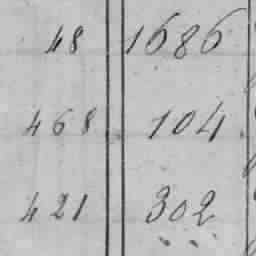 48 1686
468 104
421 302